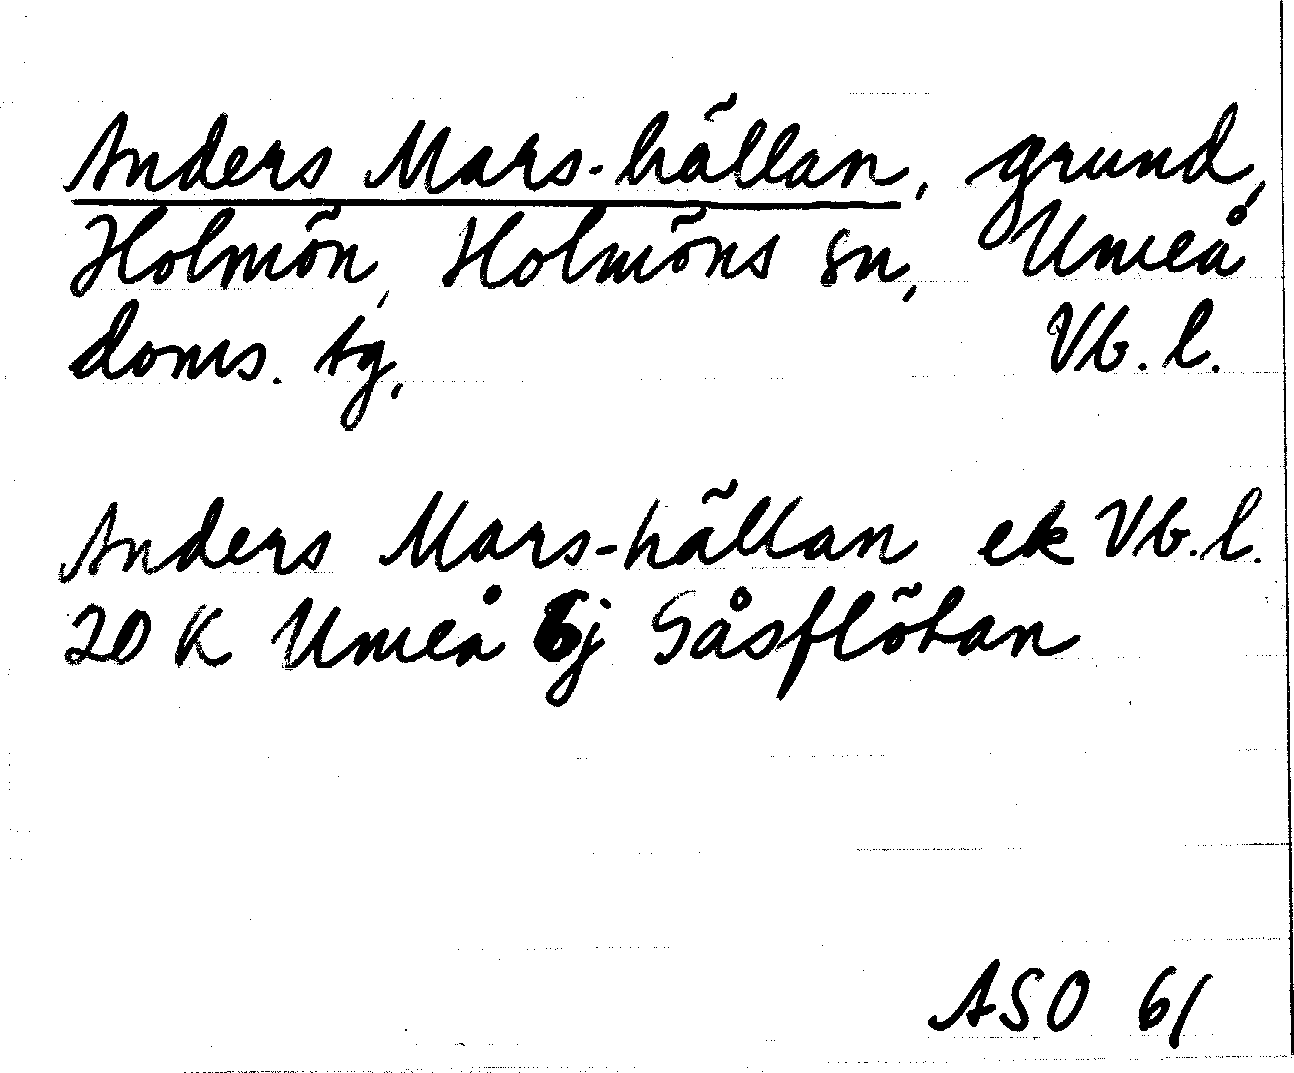 Anders Mars-hällan, grund,
Holmön, Holmöns sn, Umeå
doms. tg. Vb. l.
Anders Mars-hällan ek Vb. l.
20 K Umeå 6j Gåsflötan
ASO 61